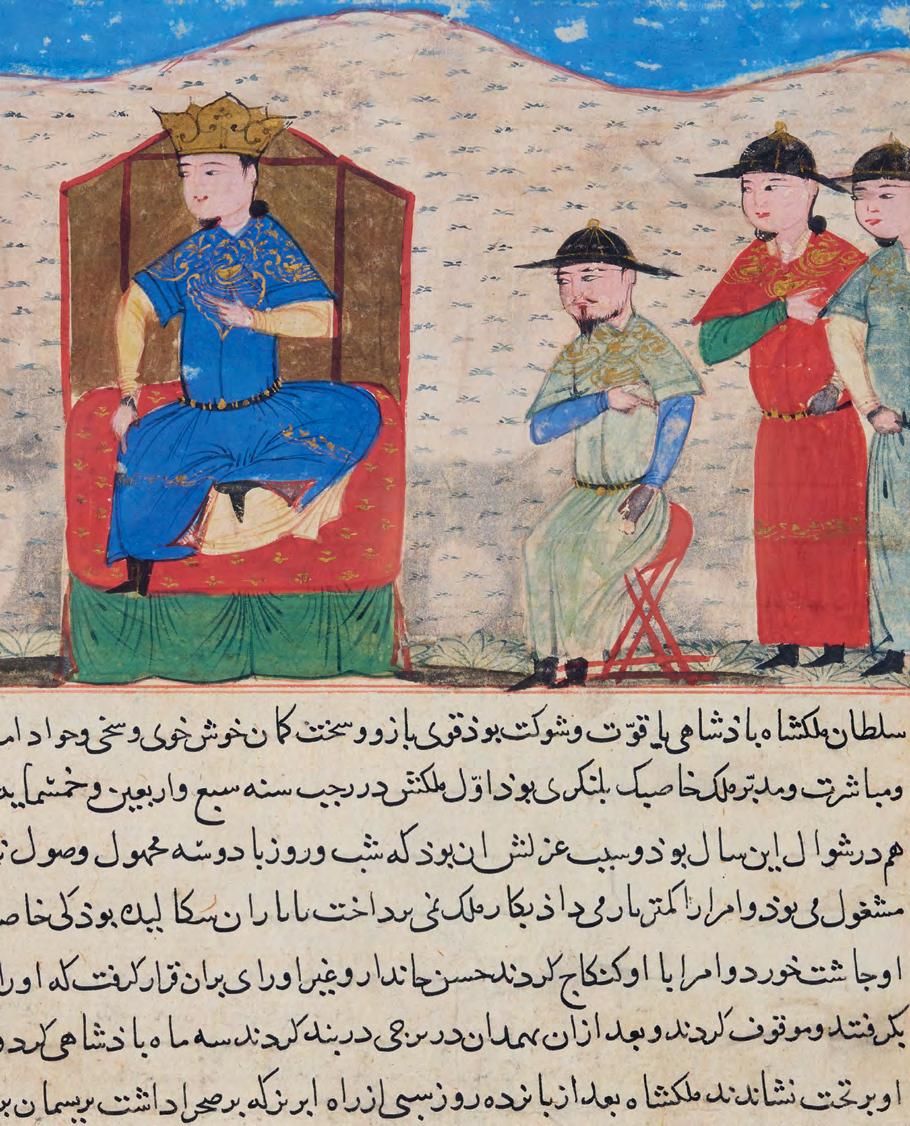 سلطان ملکشاه باذشاهی با قوّت وشوکت بوذ قوی بازو وسخت کمان خوش خوی وسخی وجواد اما
ومباشرت ومدبّر ملک خاصبک بلنکری بوذ اوّل ملکش در رجب سنه سبع واربعین وخمسمایه
هم در شوال این سال بوذ وسبب عزلش ان بوذ که شب وروز با دوسه مجهول وصول
مشغول می بوذ وامرا را کمتر بار می داذ بکار ملک نمی برداخت تا یاران سکالیده بوذ کی
او جاشت خورد وامرا با او کنکاج کردند حسن جاندار وغیر او رای بران قرار کرفت که اورا
بکرفتند وموقوف کردند وبعد از ان بهمدان در برجی دربند کردند سه ماه باذشاهی کرد
او بر تخت نشاندند ملکشاه بعد از بانزده روز سبی از راه ابریز که بر صحرا داشت بریسمان